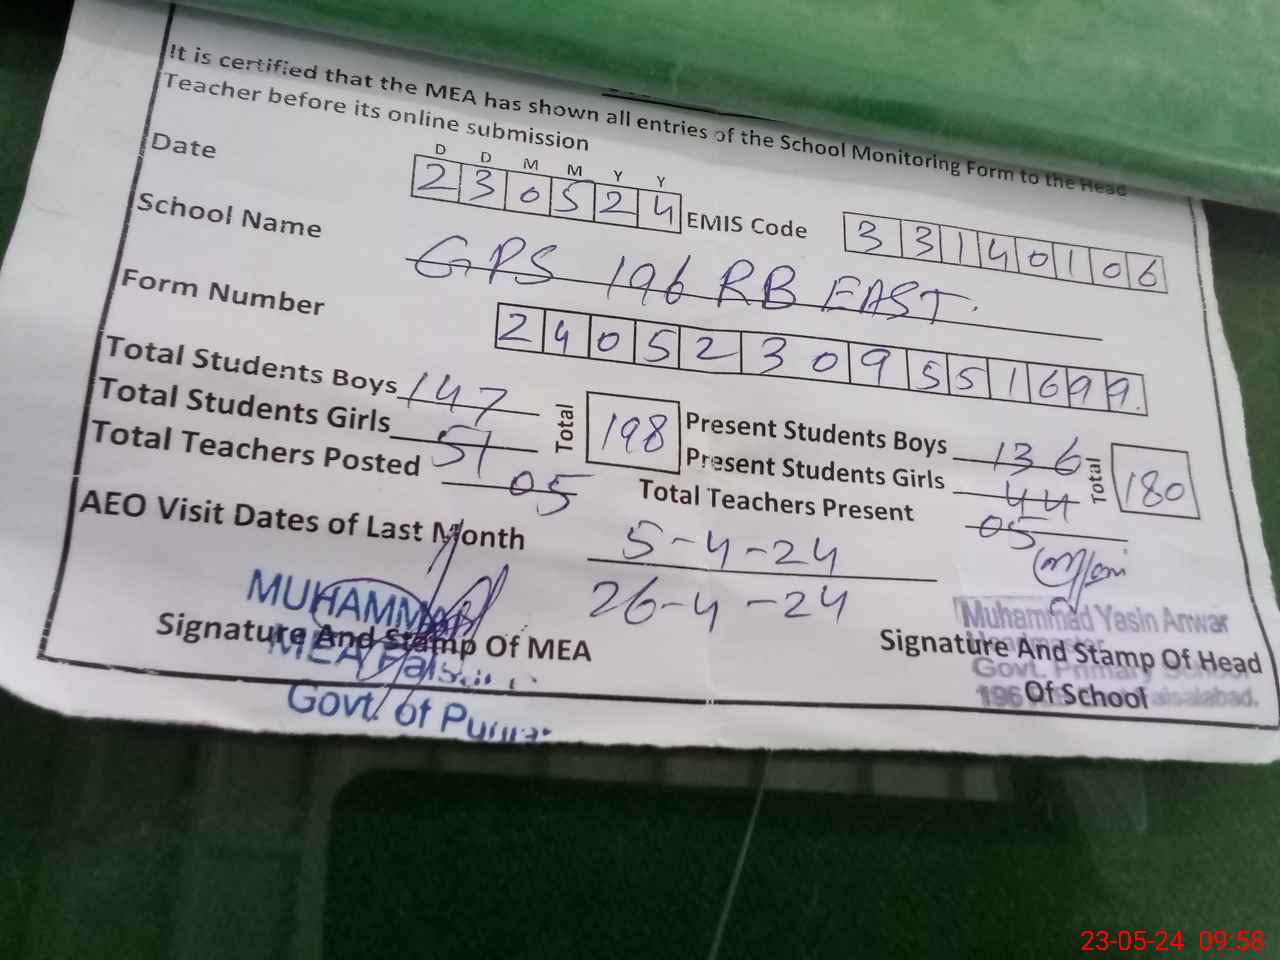 It is certified that the MEA has shown all entries of the School Monitoring Form to the Head
Teacher before its online submission
D D M M Y Y
Date 230524 EMIS Code 33140106
School Name GPS 196 RB EAST.
Form Number 24052309551699.
Total Students Boys 147 Total 198 Present Students Boys 136 Total 180
Total Students Girls 51 Present Students Girls 44
Total Teachers Posted 05 Total Teachers Present 05
AEO Visit Dates of Last Month 5-4-24
26-4-24
MUHAMMAD
Signature And Stamp Of MEA
MEA
Govt. of
Muhammad Yasin Anwar
Headmaster
Signature And Stamp Of Head
Govt. Primary School
Of School
196 Faisalabad.
23-05-24 09:58